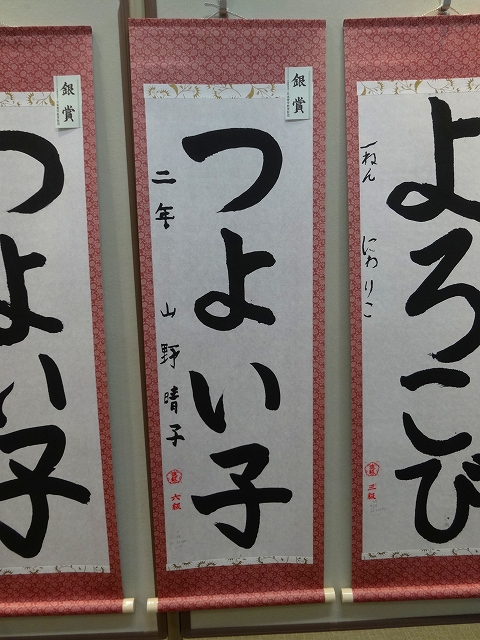 よろこび
一ねん にわりこ
三級
銀賞
つよい子
二年 山野晴子
六級
銀賞
つよい子